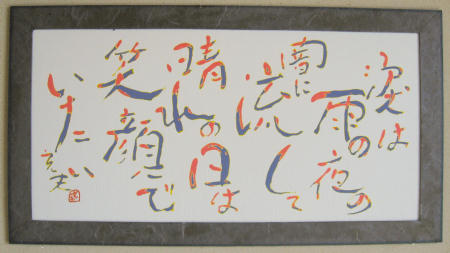 涙は
雨の夜の
闇に
流して
晴れの日は
笑顔で
いきたい